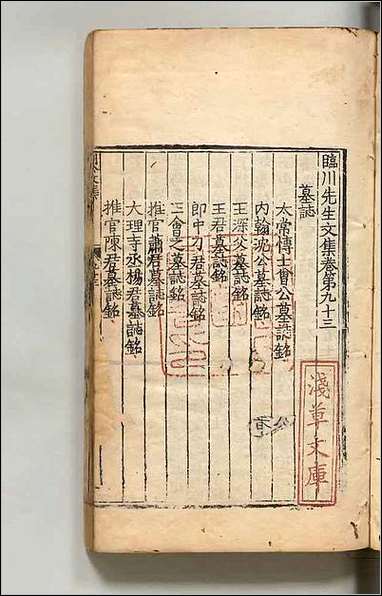 臨川先生文集卷第九十三
墓誌
太常博士曾公墓誌銘
內翰沈公墓誌銘
王深父墓誌銘
王君墓誌銘
郎中刀君墓誌銘
王會之墓誌銘
推官蕭君墓誌銘
大理寺丞楊君墓誌銘
推官陳君墓誌銘
淺草文庫